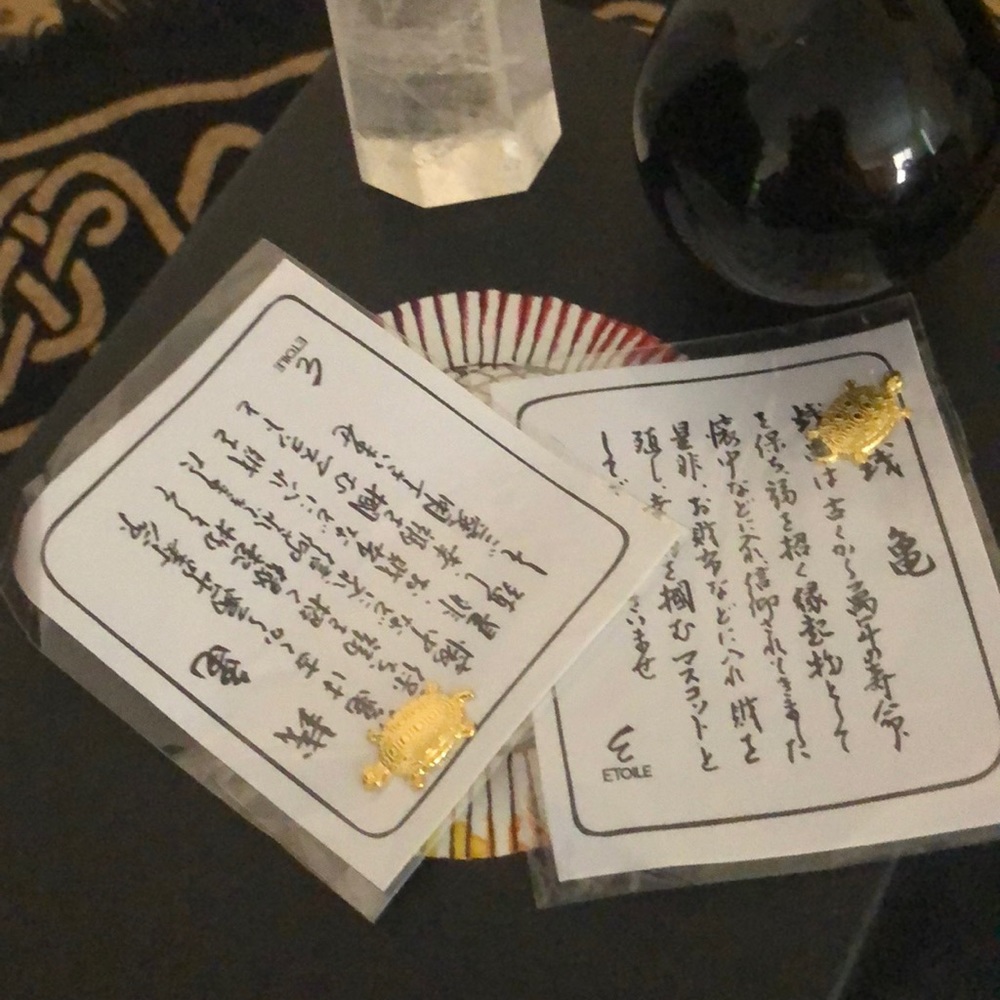 銭 亀
は古くから萬年の寿命
を保ち福を招く縁起物として
懐中などに入れ信仰されてきました
是非、お財布などに入れ 財を
殖し、幸 を掴むマスコットと
して さいませ
ETOILE
銭 亀
亀は古くから萬年の寿命
保ち福を招く縁起物として
懐中などに入れ信仰されてきました
是非、お財布などに入れ 財を
殖し、幸福を掴むマスコットと
して御愛用下さいませ
ETOILE